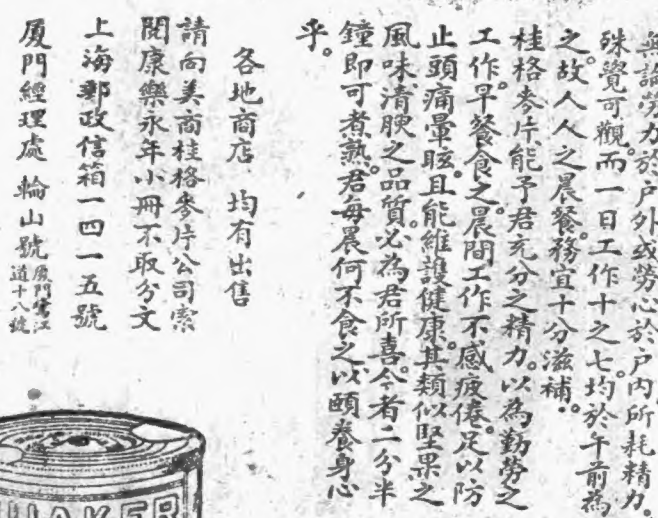 無論勞力於戶外或勞心於戶內所耗精力。
殊覺可觀。而一日工作十之七。均於午前為
之。故人人之晨餐務宜十分滋補。
桂格麥片能予君充分之精力。以為勤勞之
工作。早餐食之。晨間工作不感疲倦。足以防
止頭痛暈眩。且能維護健康。其類似堅果之
風味。清腴之品質。必為君所喜。今者二分半
鐘即可煮熟。君每晨何不食之。以頤養身心
乎。
各地商店 均有出售
請向美商桂格麥片公司索
閱康樂永年小冊不取分文
上海郵政信箱一四一五號
厦門經理處 輪山號 厦門鷺江道十八號
QUAKER